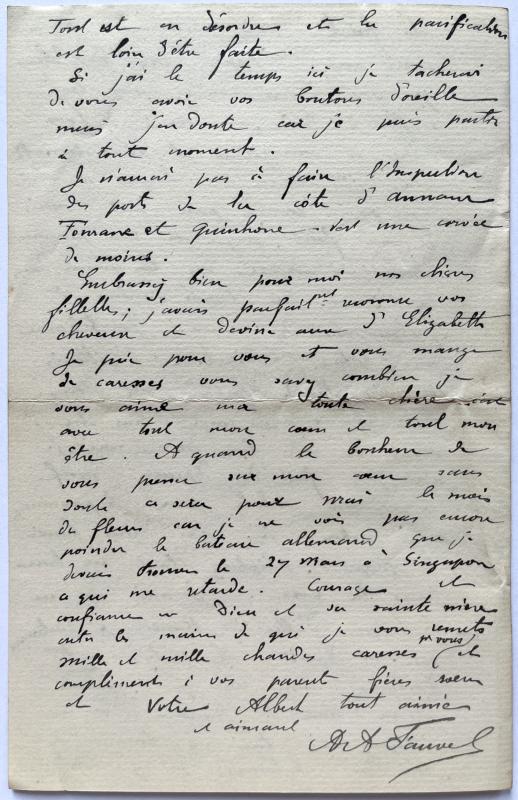 Tout est en désordre et la pacification
est loin d'être faite.
Si j'ai le temps ici je tacherai
de vous avoir vos boutons d'oreille
mais j'en doute car je puis partir
à tout moment.
Je n'aurai pas à faire l'Inspection
des ports de la côte d'annam
Tourane et quinhone. C'est une corvée
de moins.
Embrassez bien pour moi nos chères
fillettes; j'avais parfait.nt reconnu vos
cheveux et deviné ceux d'Elizabeth
Je prie pour vous et vous mange
de caresses vous savez combien je
vous aime ma toute chère
avec tout mon cœur et tout mon
être. A quand le bonheur de
vous presser sur mon cœur sans
doute ce sera pour le mois
de fleurs car je ne vois pas encore
poindre le bateau allemand que je
devais trouver le 27 Mars à Singapore
ce qui me retarde. Courage et
confiance en Dieu et sa sainte mère
entre les mains de qui je vous remets
Mille et mille chaudes caresses pr vous et
compliments à vos parents frères sœurs
et Votre Albert tout aimé
et aimant
A A Fauvel